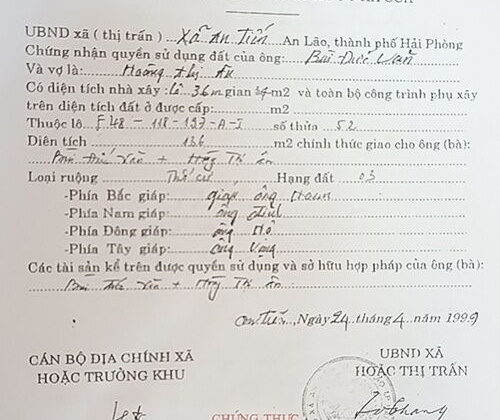 UBND xã ( thị trấn ) Xã An Tiến An Lão, thành phố Hải Phòng
Chứng nhận quyền sử dụng đất của ông: Bùi Đức Văn
Và vợ là: Hoàng Thị Ân
Có diện tích nhà xây : 36m gian m2 và toàn bộ công trình phụ xây
trên diện tích đất ở được cấp: m2
Thuộc lô F48 - 118 - 137 - A - I số thửa 52
Diện tích 136 m2 chính thức giao cho ông (bà):
Bùi Đức Văn + Hoàng Thị Ân
Loại ruộng Thổ cư Hạng đất 03
-Phía Bắc giáp: ông
-Phía Nam giáp: ông
-Phía Đông giáp: ông
-Phía Tây giáp: ông
Các tài sản kể trên được quyền sử dụng và sở hữu hợp pháp của ông (bà):
Bùi Đức Văn + Hoàng Thị Ân
An Tiến, Ngày 24 tháng 4 năm 1999
CÁN BỘ ĐỊA CHÍNH XÃ
HOẶC TRƯỞNG KHU
UBND XÃ
HOẶC THỊ TRẤN
CHỨNG THỰC